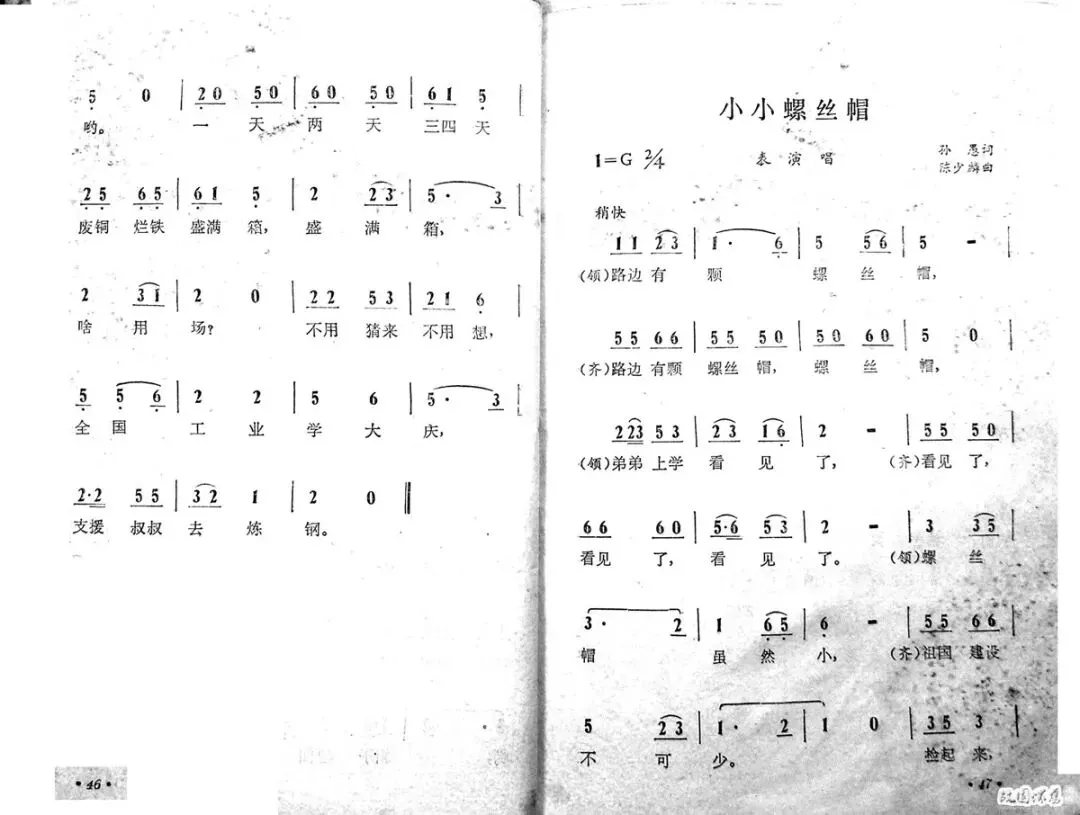 5 0 | 20 50 | 60 50 | 61 5 |
哟。 一 天 两 天 三四 天
25 65 | 61 5 | 2 23 | 5· 3 |
废铜 烂铁 盛满 箱, 盛 满 箱,
2 31 | 2 0 | 22 53 | 21 6 |
啥 用 场? 不用 猜来 不用 想,
5 5 6 | 2 2 | 5 6 | 5· 3 |
全 国 工 业 学 大 庆,
2·2 55 | 32 1 | 2 0 ‖
支援 叔叔 去 炼 钢。
·46·
小小螺丝帽
1=G 2/4
表演唱
孙愚词
陈少麟曲
稍快
11 23 | 1· 6 | 5 56 | 5 - |
(领)路边 有 颗 螺 丝 帽,
55 66 | 55 50 | 50 60 | 5 0 |
(齐)路边 有颗 螺丝 帽, 螺 丝 帽,
223 53 | 23 16 | 2 - | 55 50 |
(领)弟弟 上学 看 见 了, (齐)看见 了,
66 60 | 5·6 53 | 2 - | 3 35 |
看见 了, 看 见 了。 (领)螺 丝
3· 2 | 1 65 | 6 - | 55 66 |
帽 虽 然 小, (齐)祖国 建设
5 23 | 1· 2 | 1 0 | 35 3 |
不 可 少。 捡起 来,
·47·